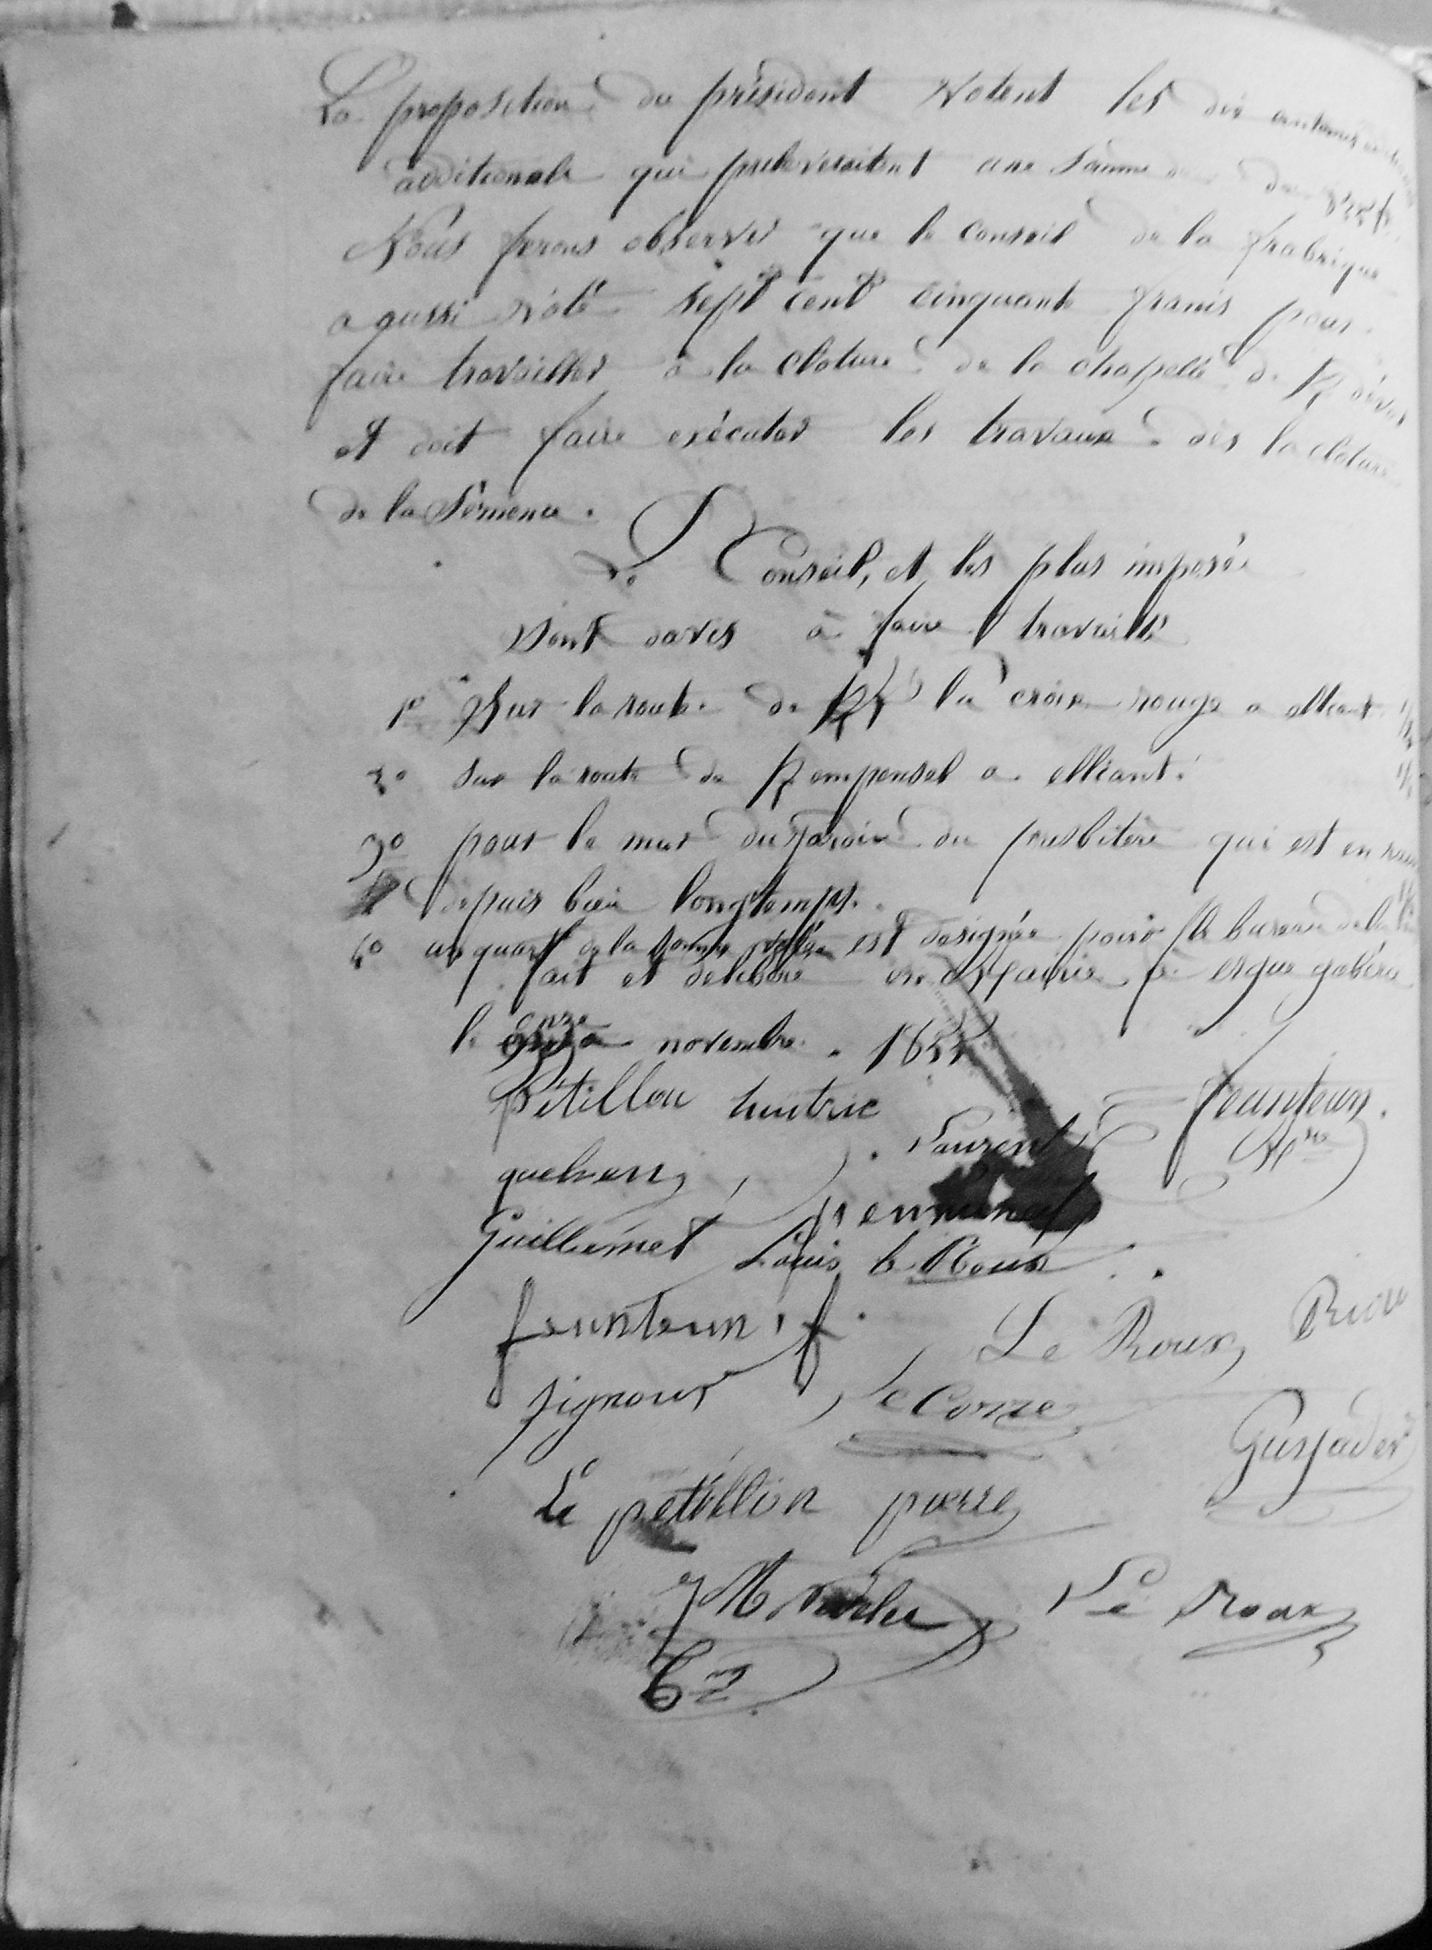 La proposition du président votent les dix centimes
additionals qui preleveraitent une Somme de
Nous ferons observer que le conseil de la frabrique
a aussi voté sept cent cinquante francs pour
faire travailler à la cloture de la chapelle de K dévot
et doit faire exécuter les travaux dès la cloture
de la Semence.
Le Conseil, et les plus imposés
Sont davis à faire travaille
1º Sur la route de la croix rouge a elliant
2º Sur la route de Kempensal a elliant.
3º pour le mur du Jardin du presbitère qui est en
depuis bien longtemps.
4º un quart de la somme votée est designée pour le bureau de
fait et délibéré en Mairie à ergue gabéric
le onze novembre 1855
Pétillon huitric feunteun
Laurent Mre
quelven
pennanech
Guillimet Louis le Roux
feunteun f.
Le Roux Riou
signour Le Corre
Gurjader
Le petillion pierre
JM Le Roux